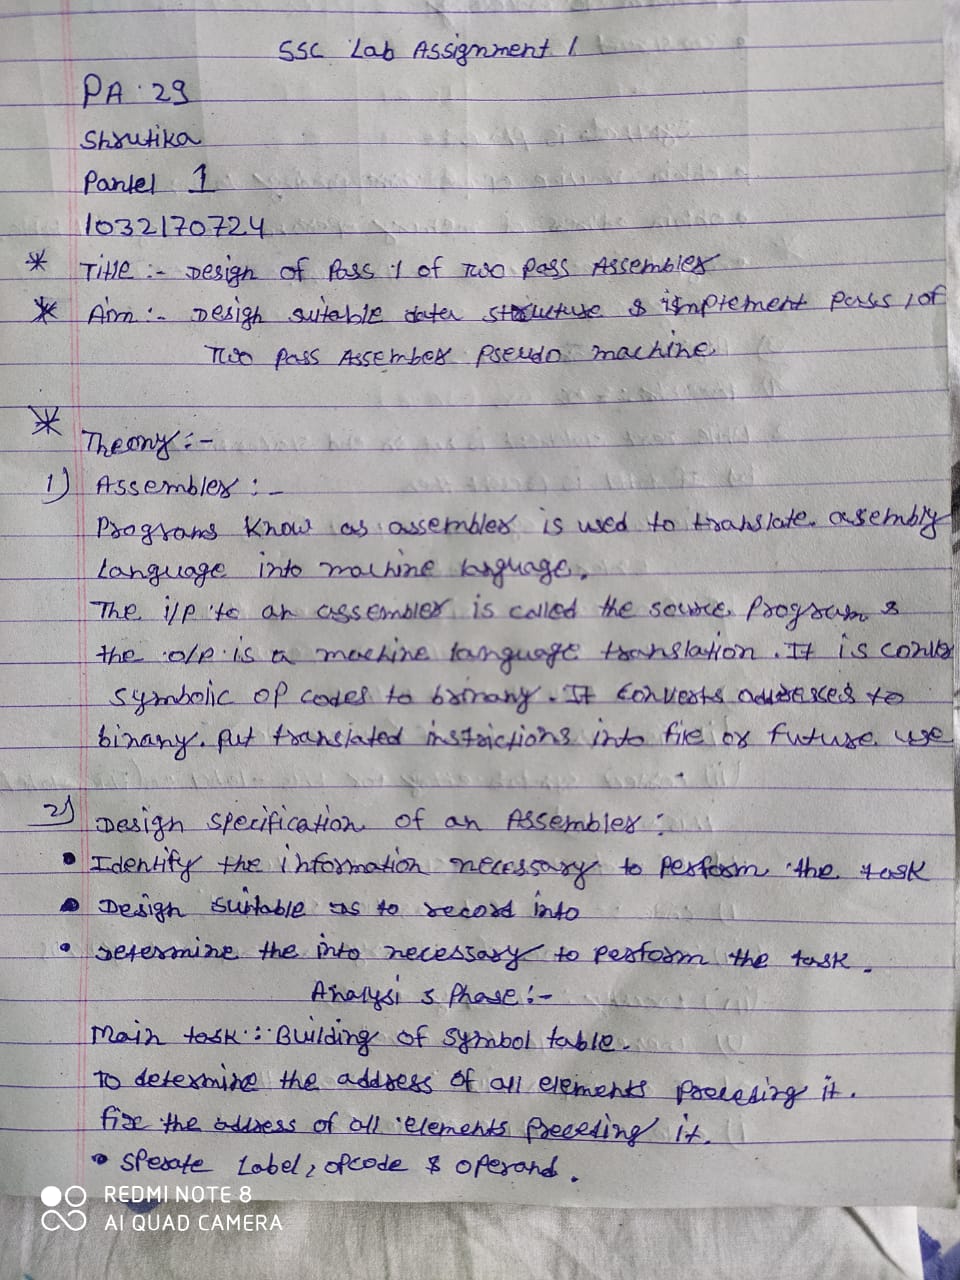 SSC Lab Assignment 1
PA 29
Shrutika
Panel 1
1032170724
* Title :- Design of Pass 1 of Two Pass Assembler
* Aim :- Design suitable data structure & implement pass 1 of
Two Pass Assember Pseudo machine.
* Theony :-
1) Assembler :-
Programs Know as assembler is used to translate asembly
Language into machine language.
The i/p to an assembler is called the source Program &
the o/p is a machine language translation. It is conver
symbolic op codes to brinary. It converts addresses to
binary. Put translated instrictions into file or future use
2) Design Specification of an Assembler :
• Identify the information necessary to perform the task
• Design suitable as to record into
• Determine the into necessary to perform the task.
Analysis Phase :-
Main task : Building of symbol table.
To determine the address of all elements preceding it.
fix the address of all elements preceding it.
• Sperate Label, opcode & operand.
REDMI NOTE 8
AI QUAD CAMERA